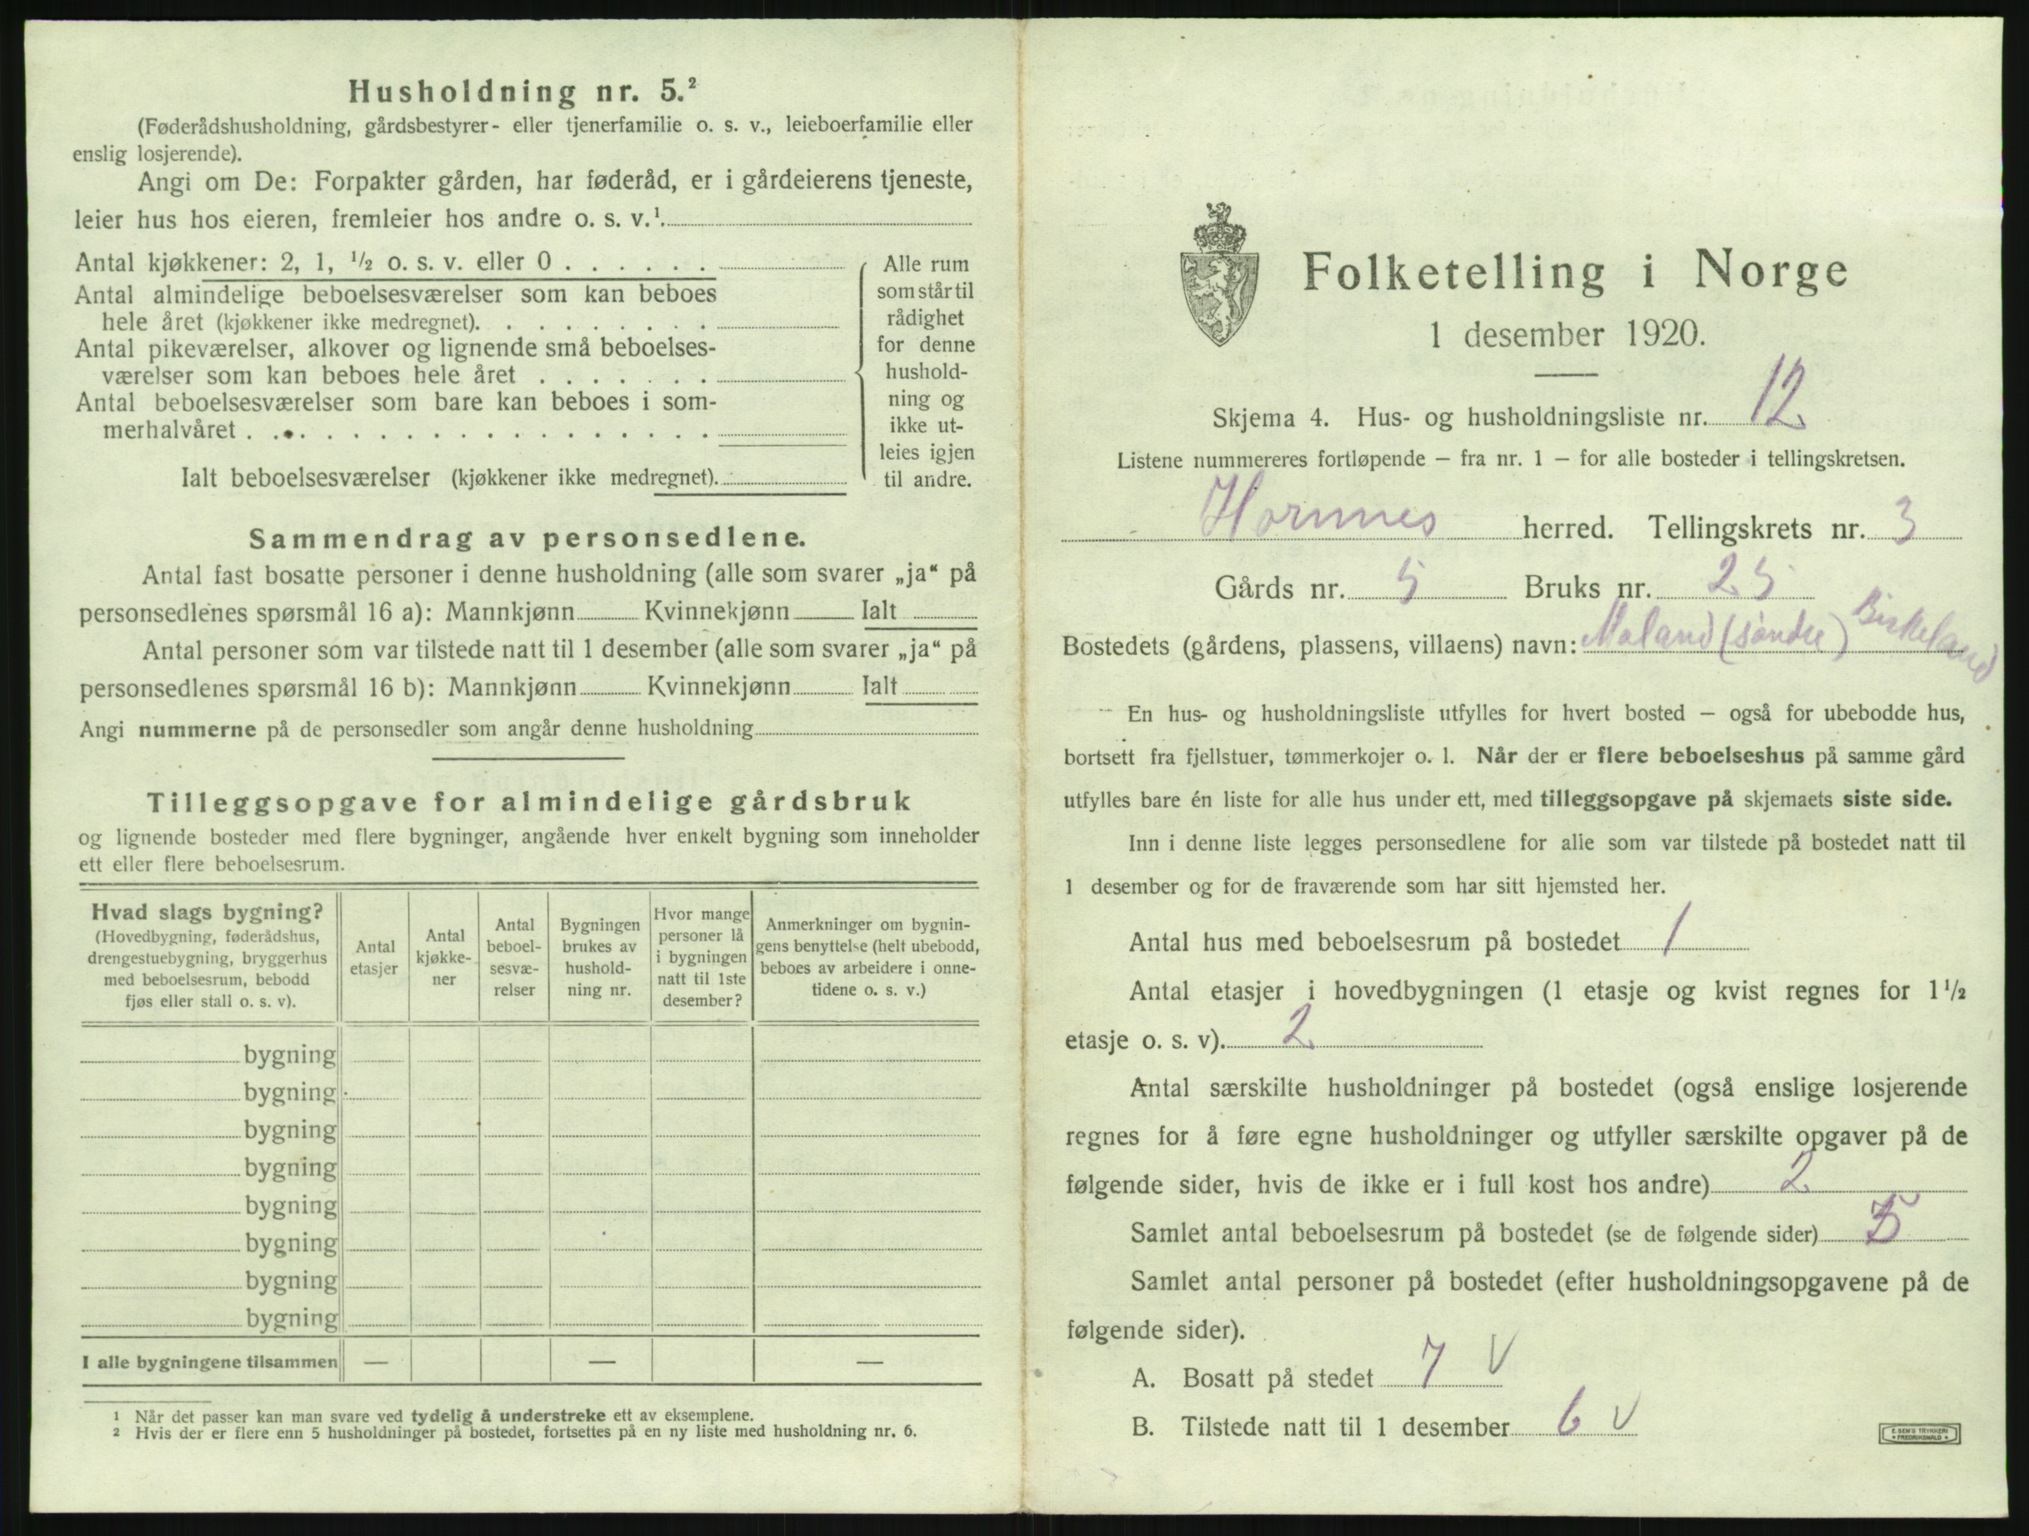 Husholdning nr. 5.²
(Føderådshusholdning, gårdsbestyrer- eller tjenerfamilie o. s. v., leieboerfamilie eller
enslig losjerende).
Angi om De: Forpakter gården, har føderåd, er i gårdeierens tjeneste,
leier hus hos eieren, fremleier hos andre o. s. v.¹
Antal kjøkkener: 2, 1, ½ o. s. v. eller 0
Antal almindelige beboelsesværelser som kan beboes
hele året (kjøkkener ikke medregnet).
Antal pikeværelser, alkover og lignende små beboelses-
værelser som kan beboes hele året
Antal beboelsesværelser som bare kan beboes i som-
merhalvåret
Ialt beboelsesværelser (kjøkkener ikke medregnet).
Alle rum
som står til
rådighet
for denne
hushold-
ning og
ikke ut-
leies igjen
til andre.
Sammendrag av personsedlene.
Antal fast bosatte personer i denne husholdning (alle som svarer „ja“ på
personsedlenes spørsmål 16 a): Mannkjønn Kvinnekjønn Ialt
Antal personer som var tilstede natt til 1 desember (alle som svarer „ja“ på
personsedlenes spørsmål 16 b): Mannkjønn Kvinnekjønn Ialt
Angi nummerne på de personsedler som angår denne husholdning
Tilleggsopgave for almindelige gårdsbruk
og lignende bosteder med flere bygninger, angående hver enkelt bygning som inneholder
ett eller flere beboelsesrum.
Hvad slags bygning?
(Hovedbygning, føderådshus,
drengestuebygning, bryggerhus
med beboelsesrum, bebodd
fjøs eller stall o. s. v).
Antal
etasjer
Antal
kjøkke-
ner
Antal
beboel-
sesvæ-
relser
Bygningen
brukes av
hushold-
ning nr.
Hvor mange
personer lå
i bygningen
natt til 1ste
desember?
Anmerkninger om bygnin-
gens benyttelse (helt ubebodd,
beboes av arbeidere i onne-
tidene o. s. v.)
bygning
bygning
bygning
bygning
bygning
bygning
bygning
bygning
I alle bygningene tilsammen — — —
¹ Når det passer kan man svare ved tydelig å understreke ett av eksemplene.
² Hvis der er flere enn 5 husholdninger på bostedet, fortsettes på en ny liste med husholdning nr. 6.
Folketelling i Norge
1 desember 1920.
Skjema 4. Hus- og husholdningsliste nr. 12
Listene nummereres fortløpende – fra nr. 1 – for alle bosteder i tellingskretsen.
Hornnes herred. Tellingskrets nr. 3
Gårds nr. 5 Bruks nr. 25
Bostedets (gårdens, plassens, villaens) navn: Moland (søndre) Birkeland
En hus- og husholdningsliste utfylles for hvert bosted – også for ubebodde hus,
bortsett fra fjellstuer, tømmerkojer o. l. Når der er flere beboelseshus på samme gård
utfylles bare én liste for alle hus under ett, med tilleggsopgave på skjemaets siste side.
Inn i denne liste legges personsedlene for alle som var tilstede på bostedet natt til
1 desember og for de fraværende som har sitt hjemsted her.
Antal hus med beboelsesrum på bostedet 1
Antal etasjer i hovedbygningen (1 etasje og kvist regnes for 1½
etasje o. s. v). 2
Antal særskilte husholdninger på bostedet (også enslige losjerende
regnes for å føre egne husholdninger og utfyller særskilte opgaver på de
følgende sider, hvis de ikke er i full kost hos andre) 2
Samlet antal beboelsesrum på bostedet (se de følgende sider) 5
Samlet antal personer på bostedet (efter husholdningsopgavene på de
følgende sider).
A. Bosatt på stedet 7 V
B. Tilstede natt til 1 desember 6 V
E. SEM'S TRYKKERI
FREDRIKSHALD